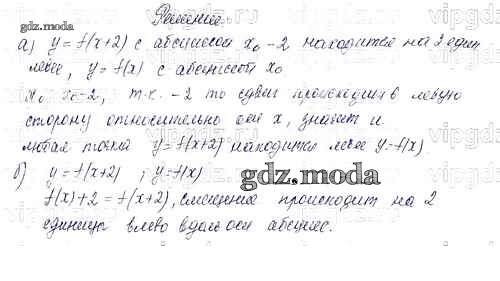 Решение.
gdz.moda
а) y = f(x+2) с абсциссой x₀-2 находится на 2 един.
левее, y = f(x) с абсциссой x₀
x₀ x₀-2, т.к. -2 то сдвиг происходил в левую
сторону относительно оси x, значит и
любая точка y = f(x+2) находится левее y=f(x)
б) y = f(x+2) ; y=f(x)
gdz.moda
f(x)+2 = f(x+2), смещение происходит на 2
единицы влево вдоль оси абсцисс.